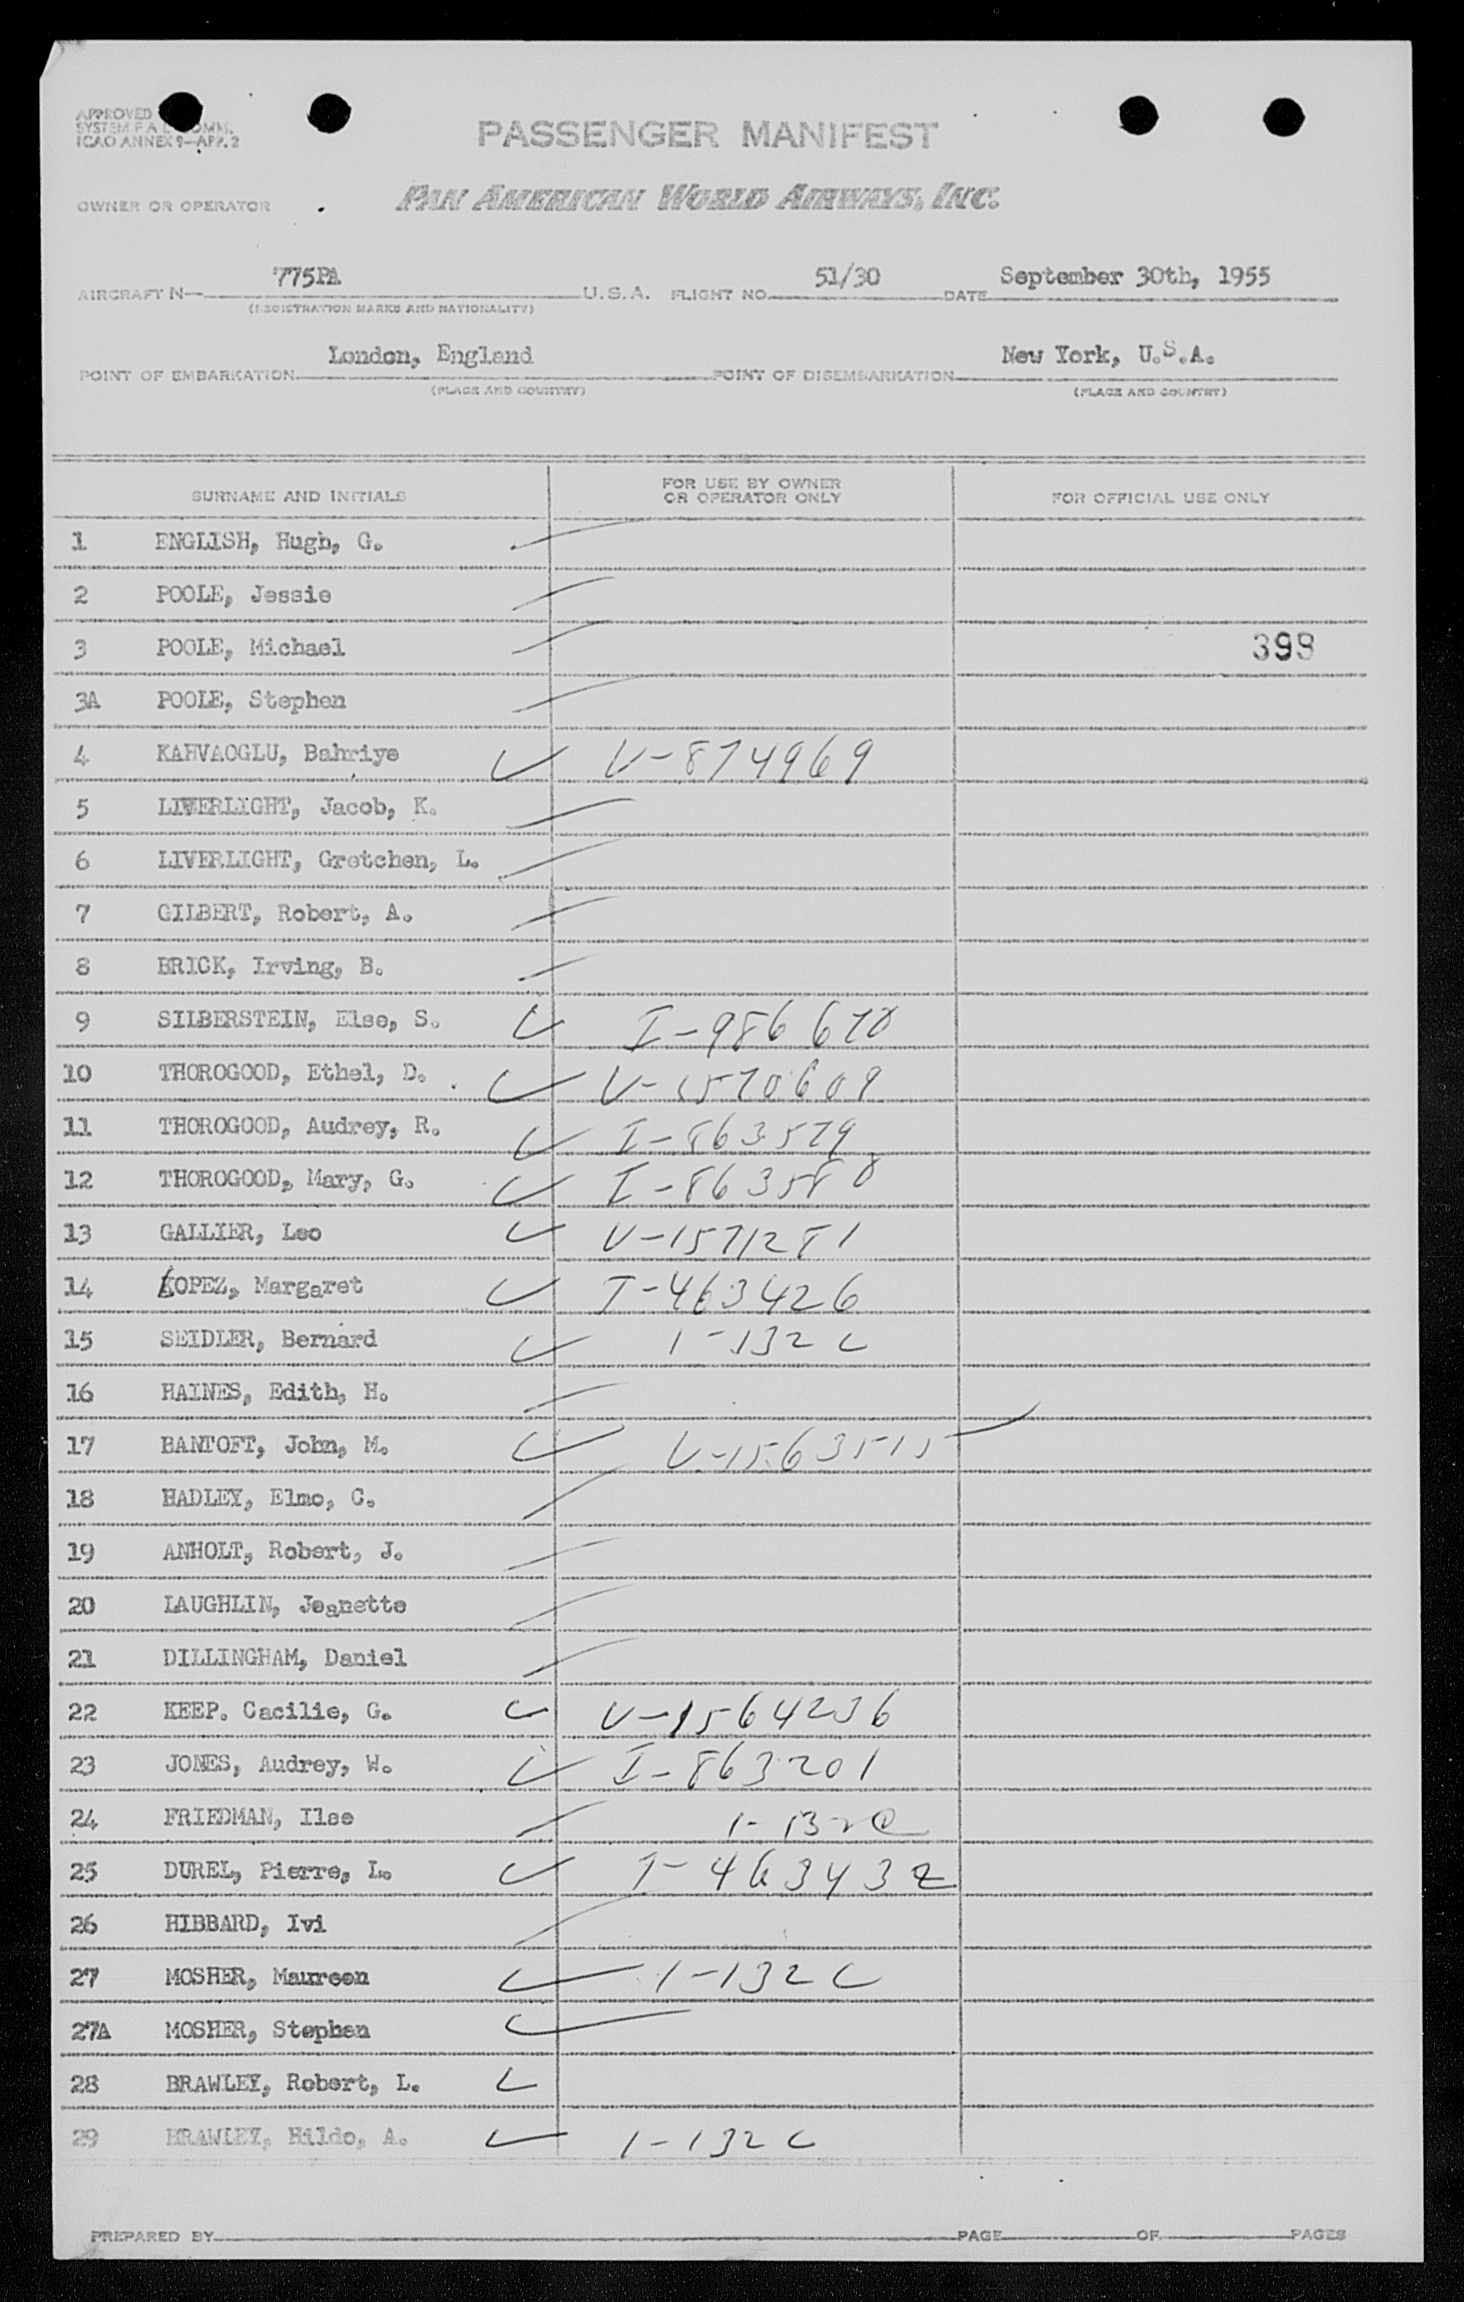 APPROVED
SYSTEM F A L COMM.
ICAO ANNEX 9—APP. 2
PASSENGER MANIFEST
OWNER OR OPERATOR
PAN AMERICAN WORLD AIRWAYS, INC.
AIRCRAFT N— 775PA U.S.A. FLIGHT NO. 51/30 DATE September 30th, 1955
(REGISTRATION MARKS AND NATIONALITY)
POINT OF EMBARKATION London, England POINT OF DISEMBARKATION New York, U.S.A.
(PLACE AND COUNTRY) (PLACE AND COUNTRY)
SURNAME AND INITIALS FOR USE BY OWNER OR OPERATOR ONLY FOR OFFICIAL USE ONLY
1 ENGLISH, Hugh, G.
2 POOLE, Jessie
3 POOLE, Michael 398
3A POOLE, Stephen
4 KAHVAOGLU, Bahriye V-874969
5 LIVERLIGHT, Jacob, K.
6 LIVERLIGHT, Gretchen, L.
7 GILBERT, Robert, A.
8 BRICK, Irving, B.
9 SILBERSTEIN, Else, S. I-986670
10 THOROGOOD, Ethel, D. V-1570609
11 THOROGOOD, Audrey, R. I-863579
12 THOROGOOD, Mary, G. I-863580
13 GALLIER, Leo V-1571281
14 LOPEZ, Margaret I-463426
15 SEIDLER, Bernard 1-132 C
16 HAINES, Edith, H.
17 BANTOFT, John, M. V-1563515
18 HADLEY, Elmo, C.
19 ANHOLT, Robert, J.
20 LAUGHLIN, Jeanette
21 DILLINGHAM, Daniel
22 KEEP. Cacilie, G. V-1564236
23 JONES, Audrey, W. I-863201
24 FRIEDMAN, Ilse 1-132C
25 DUREL, Pierre, L. I-463432
26 HIBBARD, Ivi
27 MOSHER, Maureen 1-132 C
27A MOSHER, Stephen
28 BRAWLEY, Robert, L.
29 BRAWLEY, Hildo, A. 1-132 C
PREPARED BY PAGE OF PAGES